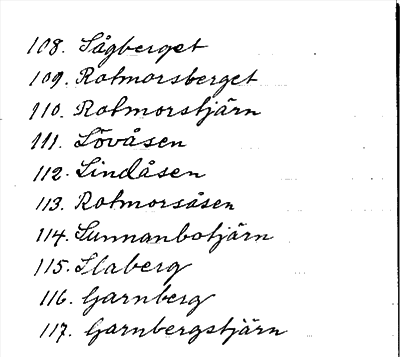 108. Sågberget
109. Rotmorsberget
110. Rotmorstjärn
111. Lövåsen
112. Lindåsen
113. Rotmorsåsen
114. Sunnanbotjärn
115. Slaberg
116. Garnberg
117. Garnbergstjärn